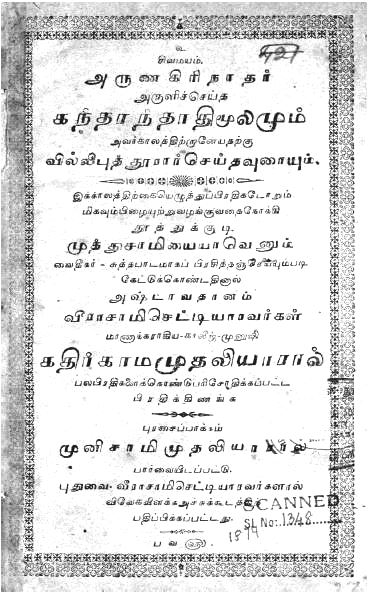 உ
சிவமயம்.
421
அருணகிரிநாதர்
அருளிச்செய்த
கந்தரந்தாதிமூலமும்
அவர்காலத்திற்குளேயதற்கு
வில்லிபுத்தூரார்செய்தவுரையும்.
இக்காலத்திற்கையெழுத்துப்பிரதிகடோறும்
மிகவும்பிழையுற்றுவழங்குவதைநோக்கி
தூத்துக்குடி
முத்துசாமிஐயரவெனும்
வைதிகர் - சுத்தபாடமாகப் பிரசித்தஞ்செய்யும்படி
கேட்டுக்கொண்டதினால்
அஷ்டாவதானம்
வீராசாமிசெட்டியாரவர்கள்
மாணாக்கராகிய-காலேஜ்-முனுஷி
கதிர்காமமுதலியாரால்
பலபிரதிகளைக்கொண்டுபரிசோதிக்கப்பட்ட
பிரதிக்கிணங்க
புரசைப்பாக்கம்
முனிசாமிமுதலியாரால்
பார்வையிடப்பட்டு,
புதுவை-வீராசாமிசெட்டியாரவர்களால்
விவேகவிளக்கஅச்சுக்கூடத்தில்
பதிப்பிக்கப்பட்டது.
SCANNED
SL No: 1348
1874
பவ